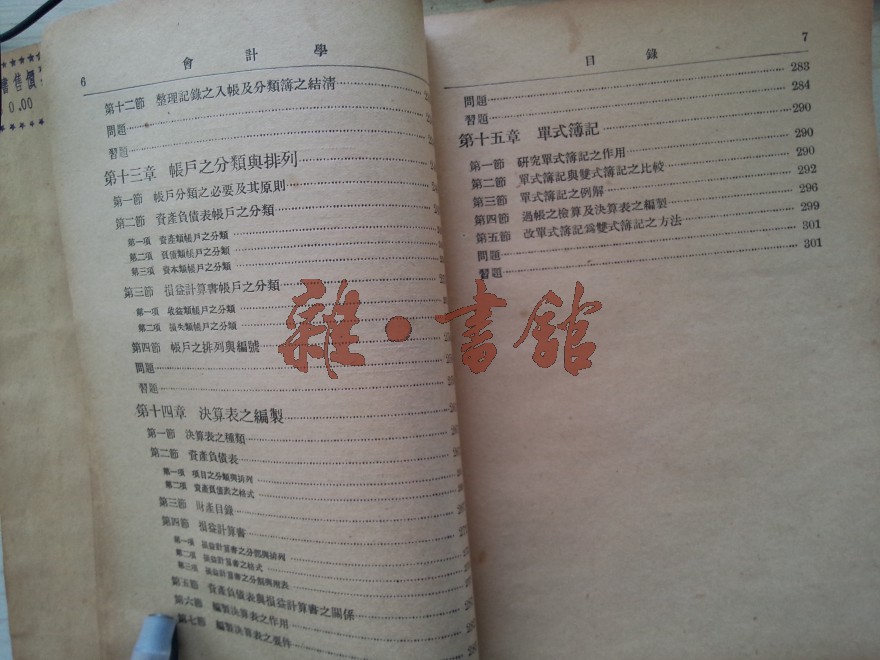 售價
0.00
6
會計學
第十二節 整理記錄之入帳及分類簿之結清
問題
習題
第十三章 帳戶之分類與排列
第一節 帳戶分類之必要及其原則
第二節 資產負債表帳戶之分類
第一項 資產類帳戶之分類
第二項 負債類帳戶之分類
第三項 資本類帳戶之分類
第三節 損益計算書帳戶之分類
第一項 收益類帳戶之分類
第二項 損失類帳戶之分類
第四節 帳戶之排列與編號
問題
習題
第十四章 決算表之編製
第一節 決算表之種類
第二節 資產負債表
第一項 項目之分類與排列
第二項 資產負債表之格式
第三節 財產目錄
第四節 損益計算書
第一項 損益計算書之分類與排列
第二項 損益計算書之格式
第三項 損益計算書之分類與附表
第五節 資產負債表與損益計算書之關係
第六節 編製決算表之作用
第七節 編製決算表之要件
目錄
7
問題 283
習題 284
第十五章 單式簿記 290
第一節 研究單式簿記之作用 290
第二節 單式簿記與雙式簿記之比較 290
第三節 單式簿記之例解 292
第四節 過帳之檢算及決算表之編製 296
第五節 改單式簿記爲雙式簿記之方法 299
問題 301
習題 301
雜·書館